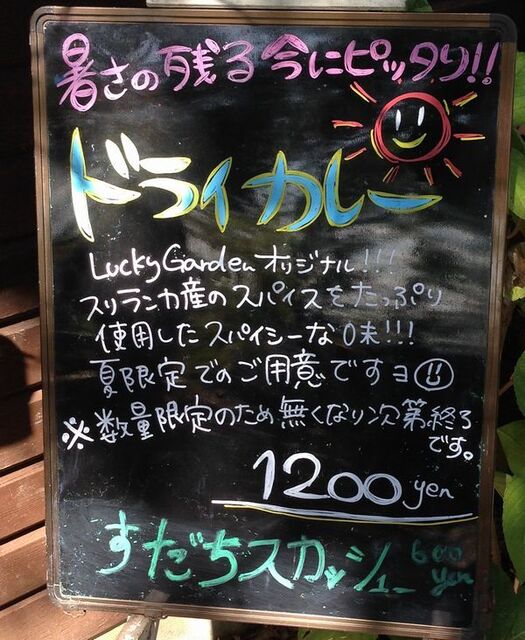 暑さの残る今にピッタリ!!
ドライカレー
Lucky Garden オリジナル!!!
スリランカ産のスパイスをたっぷり
使用したスパイシーな味!!!
夏限定でのご用意ですヨ
※数量限定のため無くなり次第終了
です。
1200 yen
すだちスカッシュー 600
yen